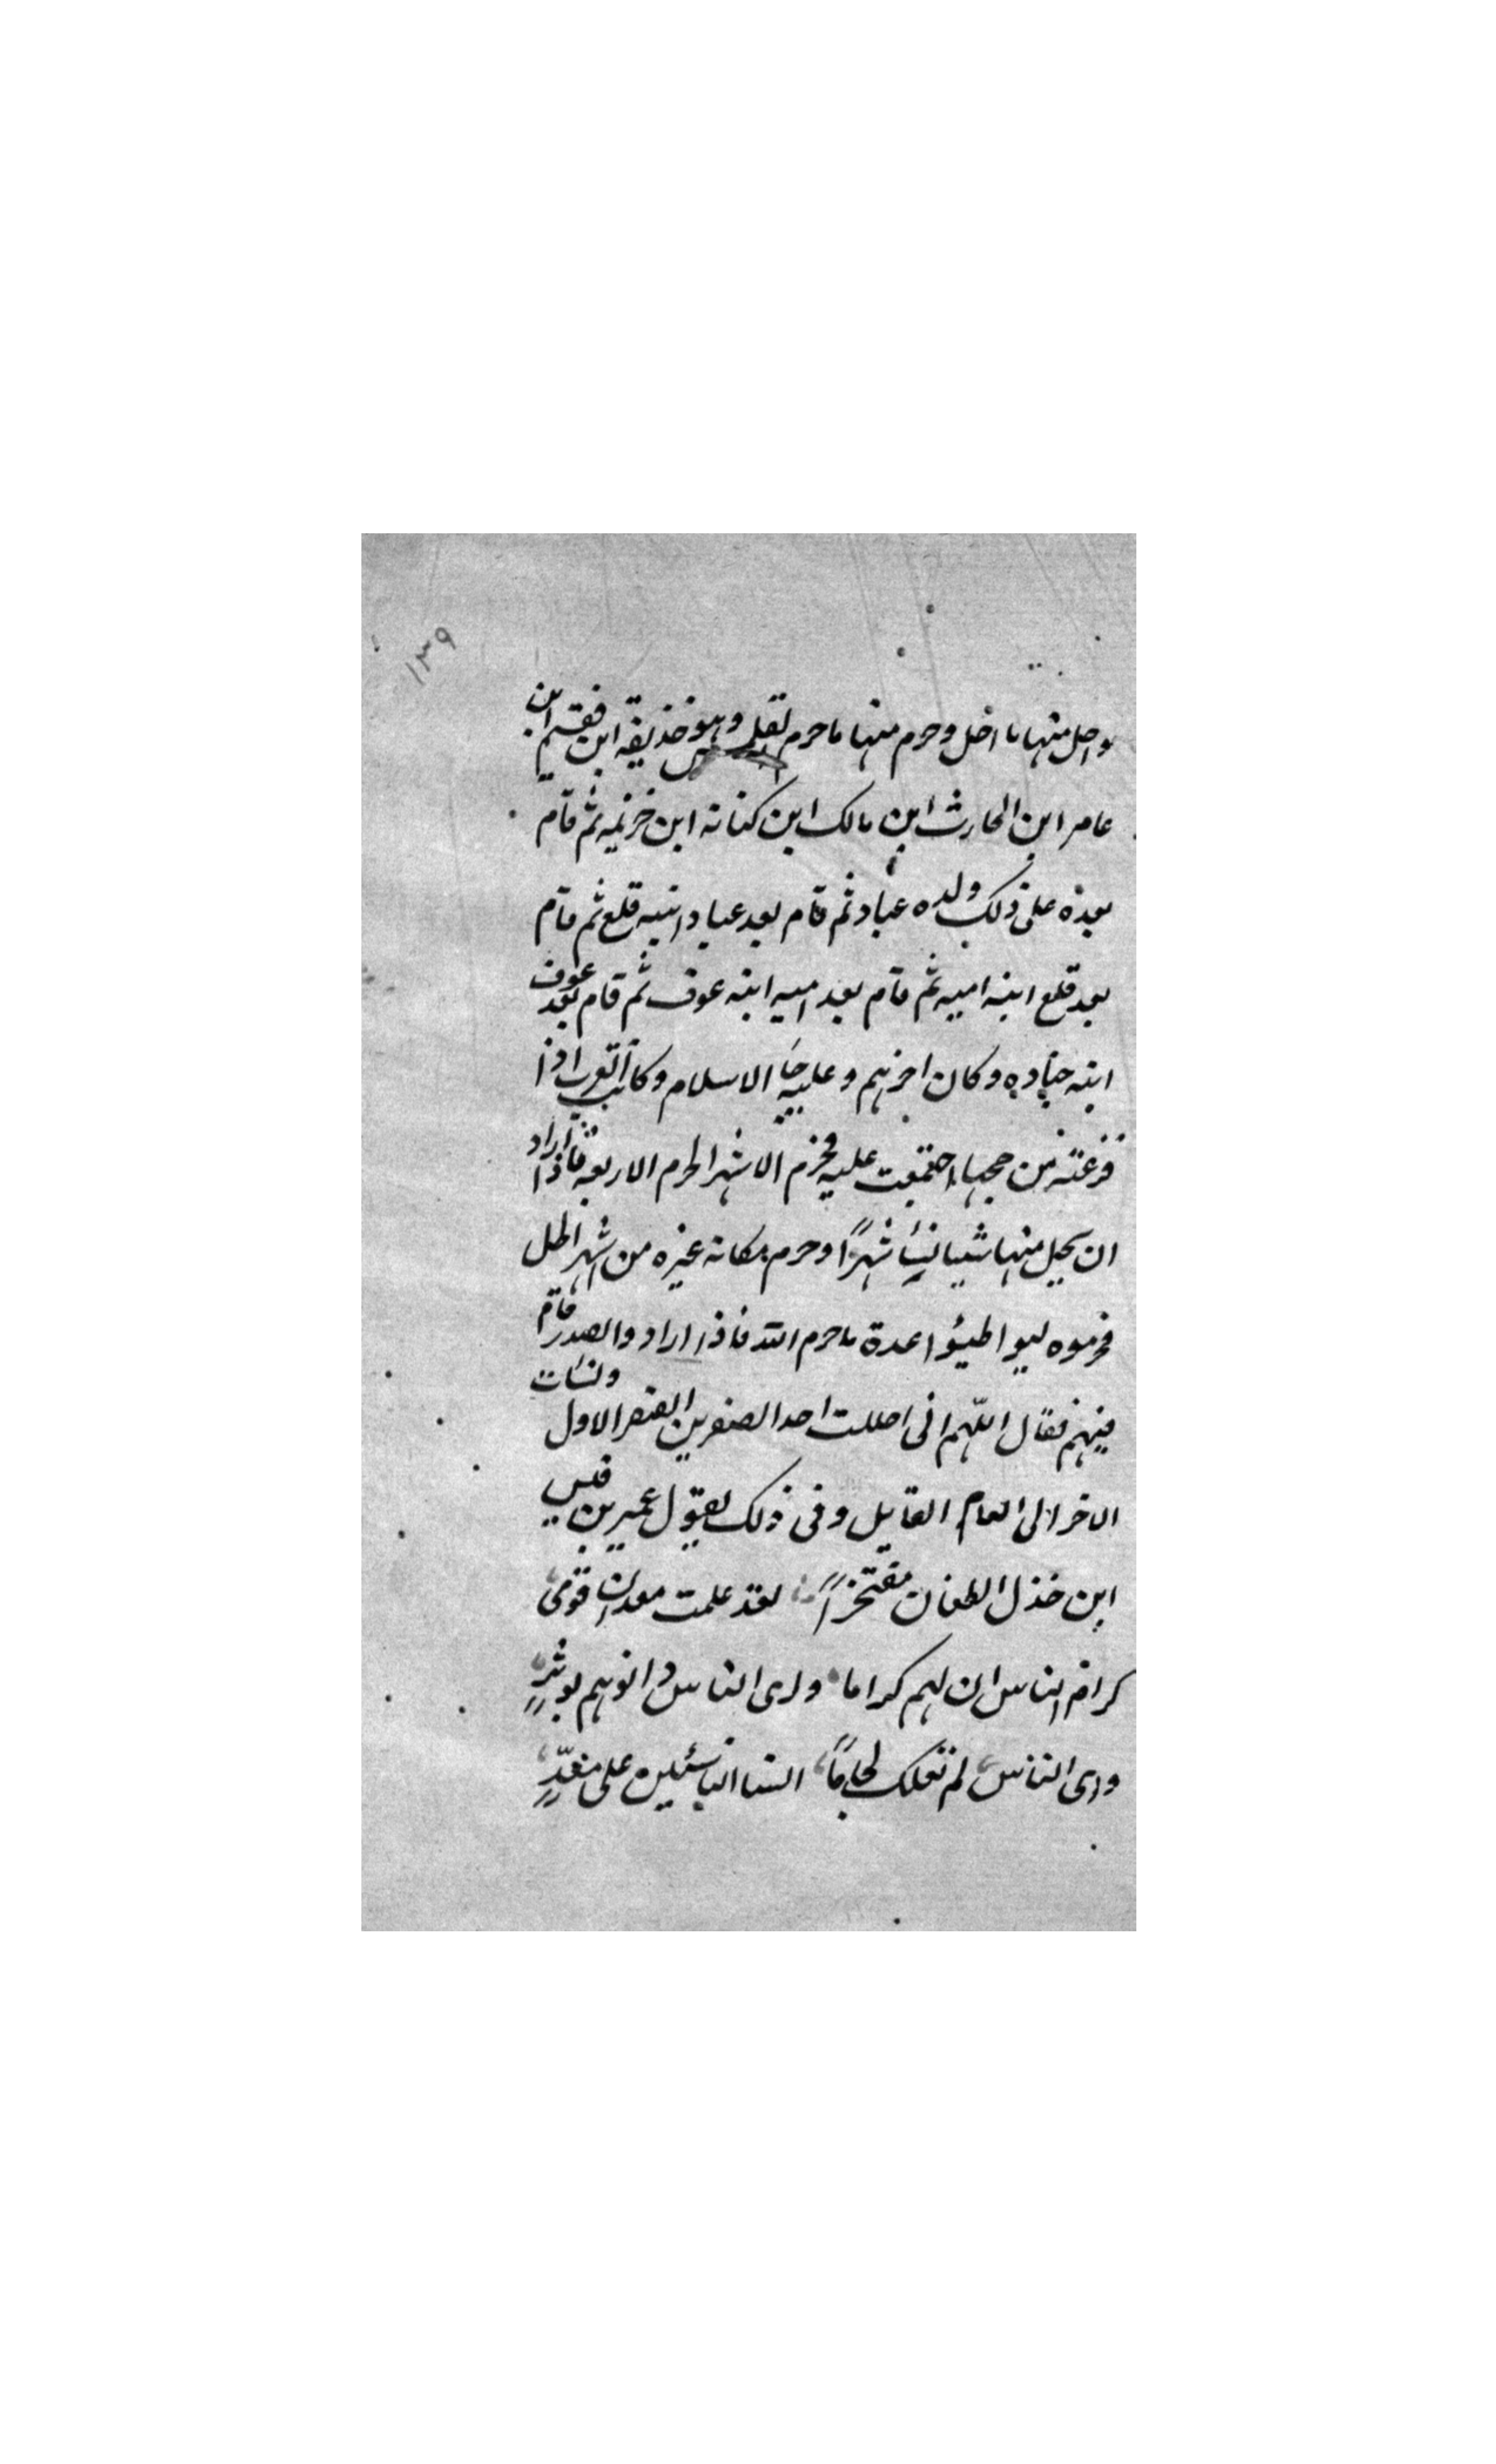 ١٣٩
واحل منها ما احل وحرم منها ما حرم لقلمس وهو حذيفه ابن فقيم ابن
عامر ابن الحارث ابن مالك ابن كنانه ابن خزيمه ثم قام
بعده على ذلك ولده عباد ثم قام بعد عباد ابنه قلع ثم قام
بعد قلع ابنه اميه ثم قام بعد اميه ابنه عوف ثم قام بعد عوف
ابنه جناده وكان اخرهم وعليه جاء الاسلام وكانت العرب اذا
فرغت من حجها اجتمعت عليه فحرم الاشهر الحرم الاربعه فاذا اراد
ان يحل منها شيا نسأ شهراً وحرم مكانه غيره من اشهر الحل
فحرموه ليواطيئوا عدة ما حرم الله فاذا ارادوا الصدر قام
فيهم فقال اللهم انى احللت احد الصفرين الصفر الاول ونسأت
الاخر الى العام القابل وفى ذلك يقول عمير بن قيس
ابن خذل الطعان مفتخراً لقد علمت معد ان قومى
كرام الناس ان لهم كراما واى الناس فانوهم بوترٍ
واى الناس لم نعلك لجاماً السنا الناسئين على معدٍّ